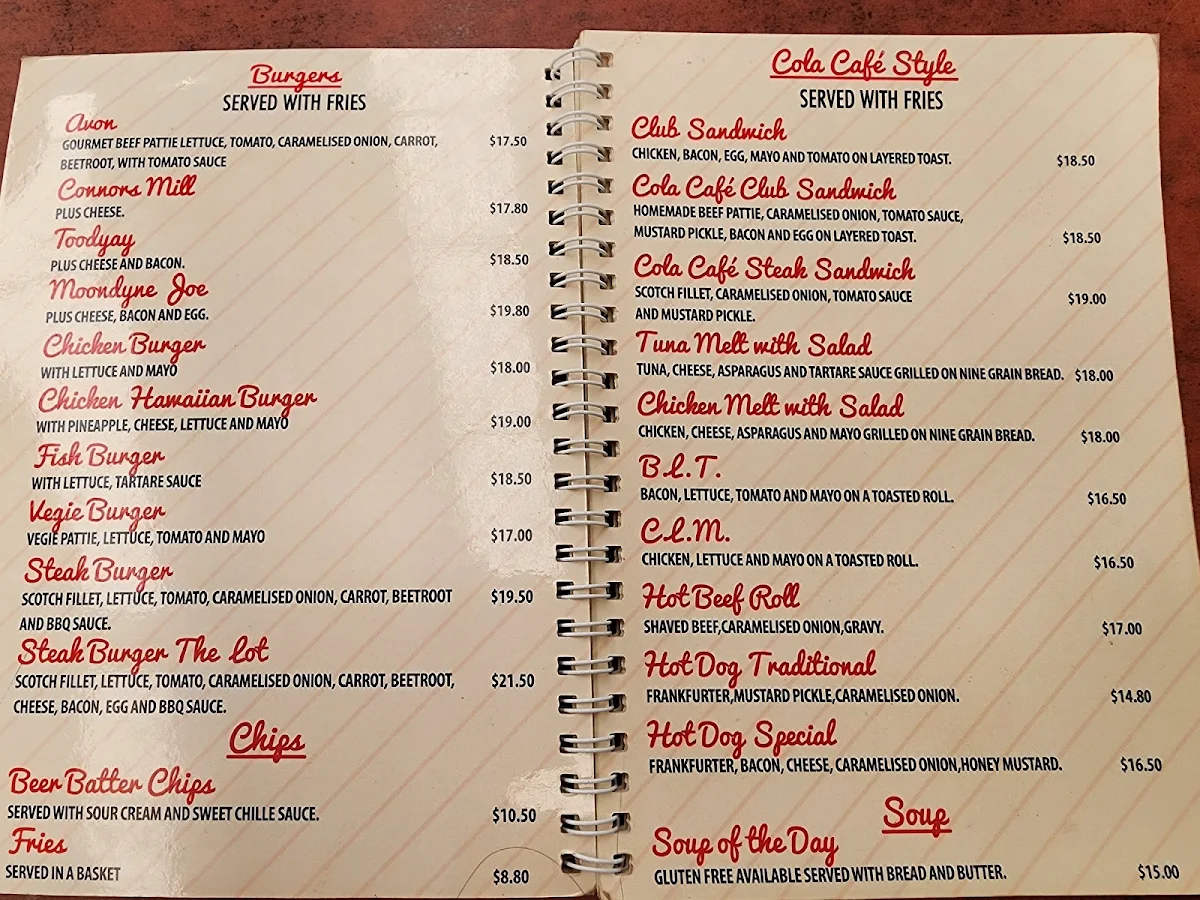 Burgers
SERVED WITH FRIES
Avon
GOURMET BEEF PATTIE LETTUCE, TOMATO, CARAMELISED ONION, CARROT, $17.50
BEETROOT, WITH TOMATO SAUCE
Connors Mill
PLUS CHEESE. $17.80
Toodyay
PLUS CHEESE AND BACON. $18.50
Moondyne Joe
PLUS CHEESE, BACON AND EGG. $19.80
Chicken Burger
WITH LETTUCE AND MAYO $18.00
Chicken Hawaiian Burger
WITH PINEAPPLE, CHEESE, LETTUCE AND MAYO $19.00
Fish Burger
WITH LETTUCE, TARTARE SAUCE $18.50
Vegie Burger
VEGIE PATTIE, LETTUCE, TOMATO AND MAYO $17.00
Steak Burger
SCOTCH FILLET, LETTUCE, TOMATO, CARAMELISED ONION, CARROT, BEETROOT $19.50
AND BBQ SAUCE.
Steak Burger The Lot
SCOTCH FILLET, LETTUCE, TOMATO, CARAMELISED ONION, CARROT, BEETROOT, $21.50
CHEESE, BACON, EGG AND BBQ SAUCE.
Chips
Beer Batter Chips
SERVED WITH SOUR CREAM AND SWEET CHILLE SAUCE. $10.50
Fries
SERVED IN A BASKET $8.80
Cola Café Style
SERVED WITH FRIES
Club Sandwich
CHICKEN, BACON, EGG, MAYO AND TOMATO ON LAYERED TOAST. $18.50
Cola Café Club Sandwich
HOMEMADE BEEF PATTIE, CARAMELISED ONION, TOMATO SAUCE,
MUSTARD PICKLE, BACON AND EGG ON LAYERED TOAST. $18.50
Cola Café Steak Sandwich
SCOTCH FILLET, CARAMELISED ONION, TOMATO SAUCE $19.00
AND MUSTARD PICKLE.
Tuna Melt with Salad
TUNA, CHEESE, ASPARAGUS AND TARTARE SAUCE GRILLED ON NINE GRAIN BREAD. $18.00
Chicken Melt with Salad
CHICKEN, CHEESE, ASPARAGUS AND MAYO GRILLED ON NINE GRAIN BREAD. $18.00
B.L.T.
BACON, LETTUCE, TOMATO AND MAYO ON A TOASTED ROLL. $16.50
C.L.M.
CHICKEN, LETTUCE AND MAYO ON A TOASTED ROLL. $16.50
Hot Beef Roll
SHAVED BEEF,CARAMELISED ONION,GRAVY. $17.00
Hot Dog Traditional
FRANKFURTER,MUSTARD PICKLE,CARAMELISED ONION. $14.80
Hot Dog Special
FRANKFURTER, BACON, CHEESE, CARAMELISED ONION,HONEY MUSTARD. $16.50
Soup
Soup of the Day
GLUTEN FREE AVAILABLE SERVED WITH BREAD AND BUTTER. $15.00